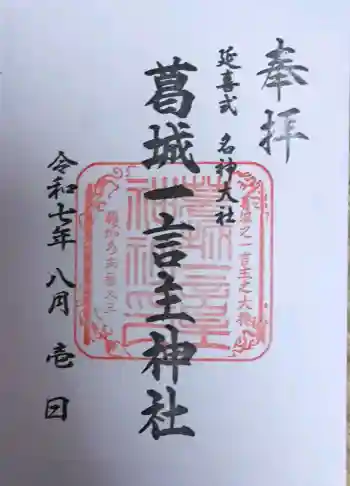 奉拝
延喜式 名神大社
葛城一言主神社
令和七年 八月 壱日